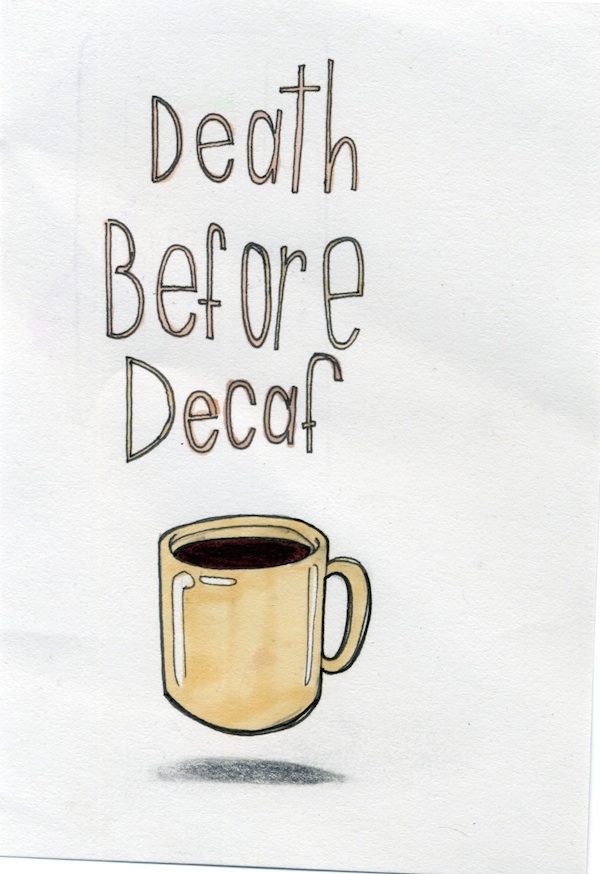 Death
Before
Decaf